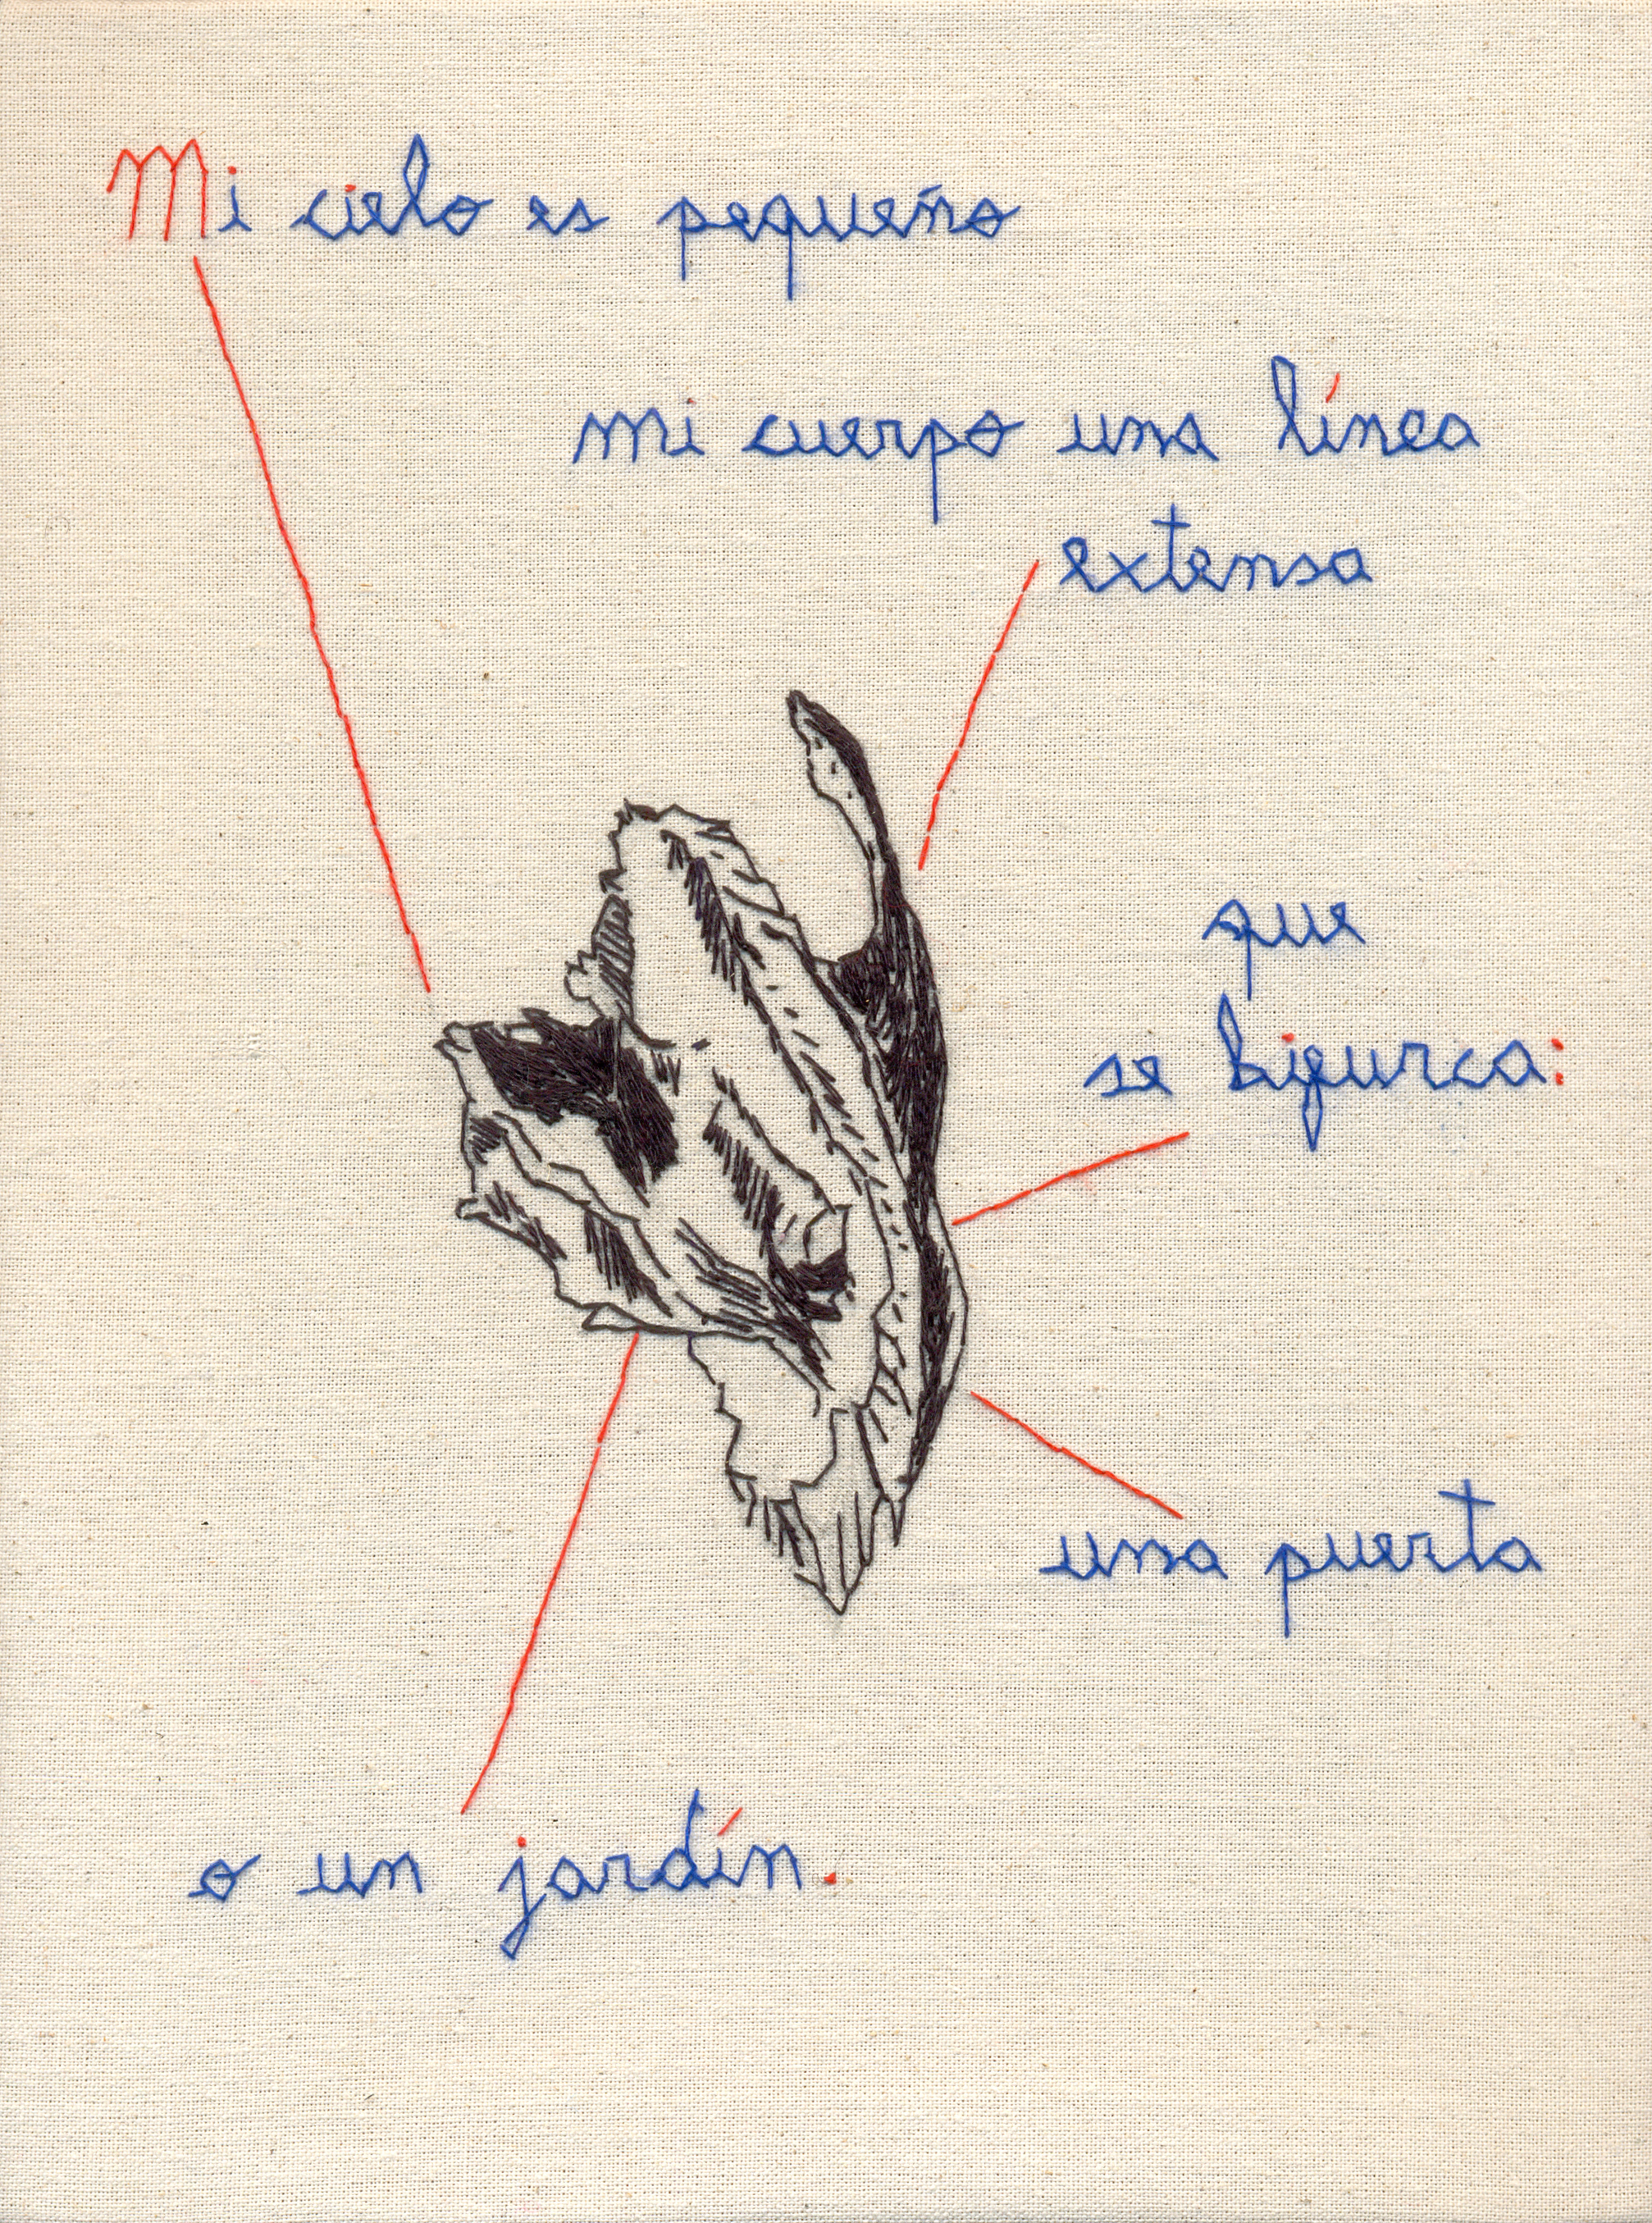 Mi cielo es pequeño
mi cuerpo una línea
extensa
que
se bifurca:
una puerta
o un jardín.